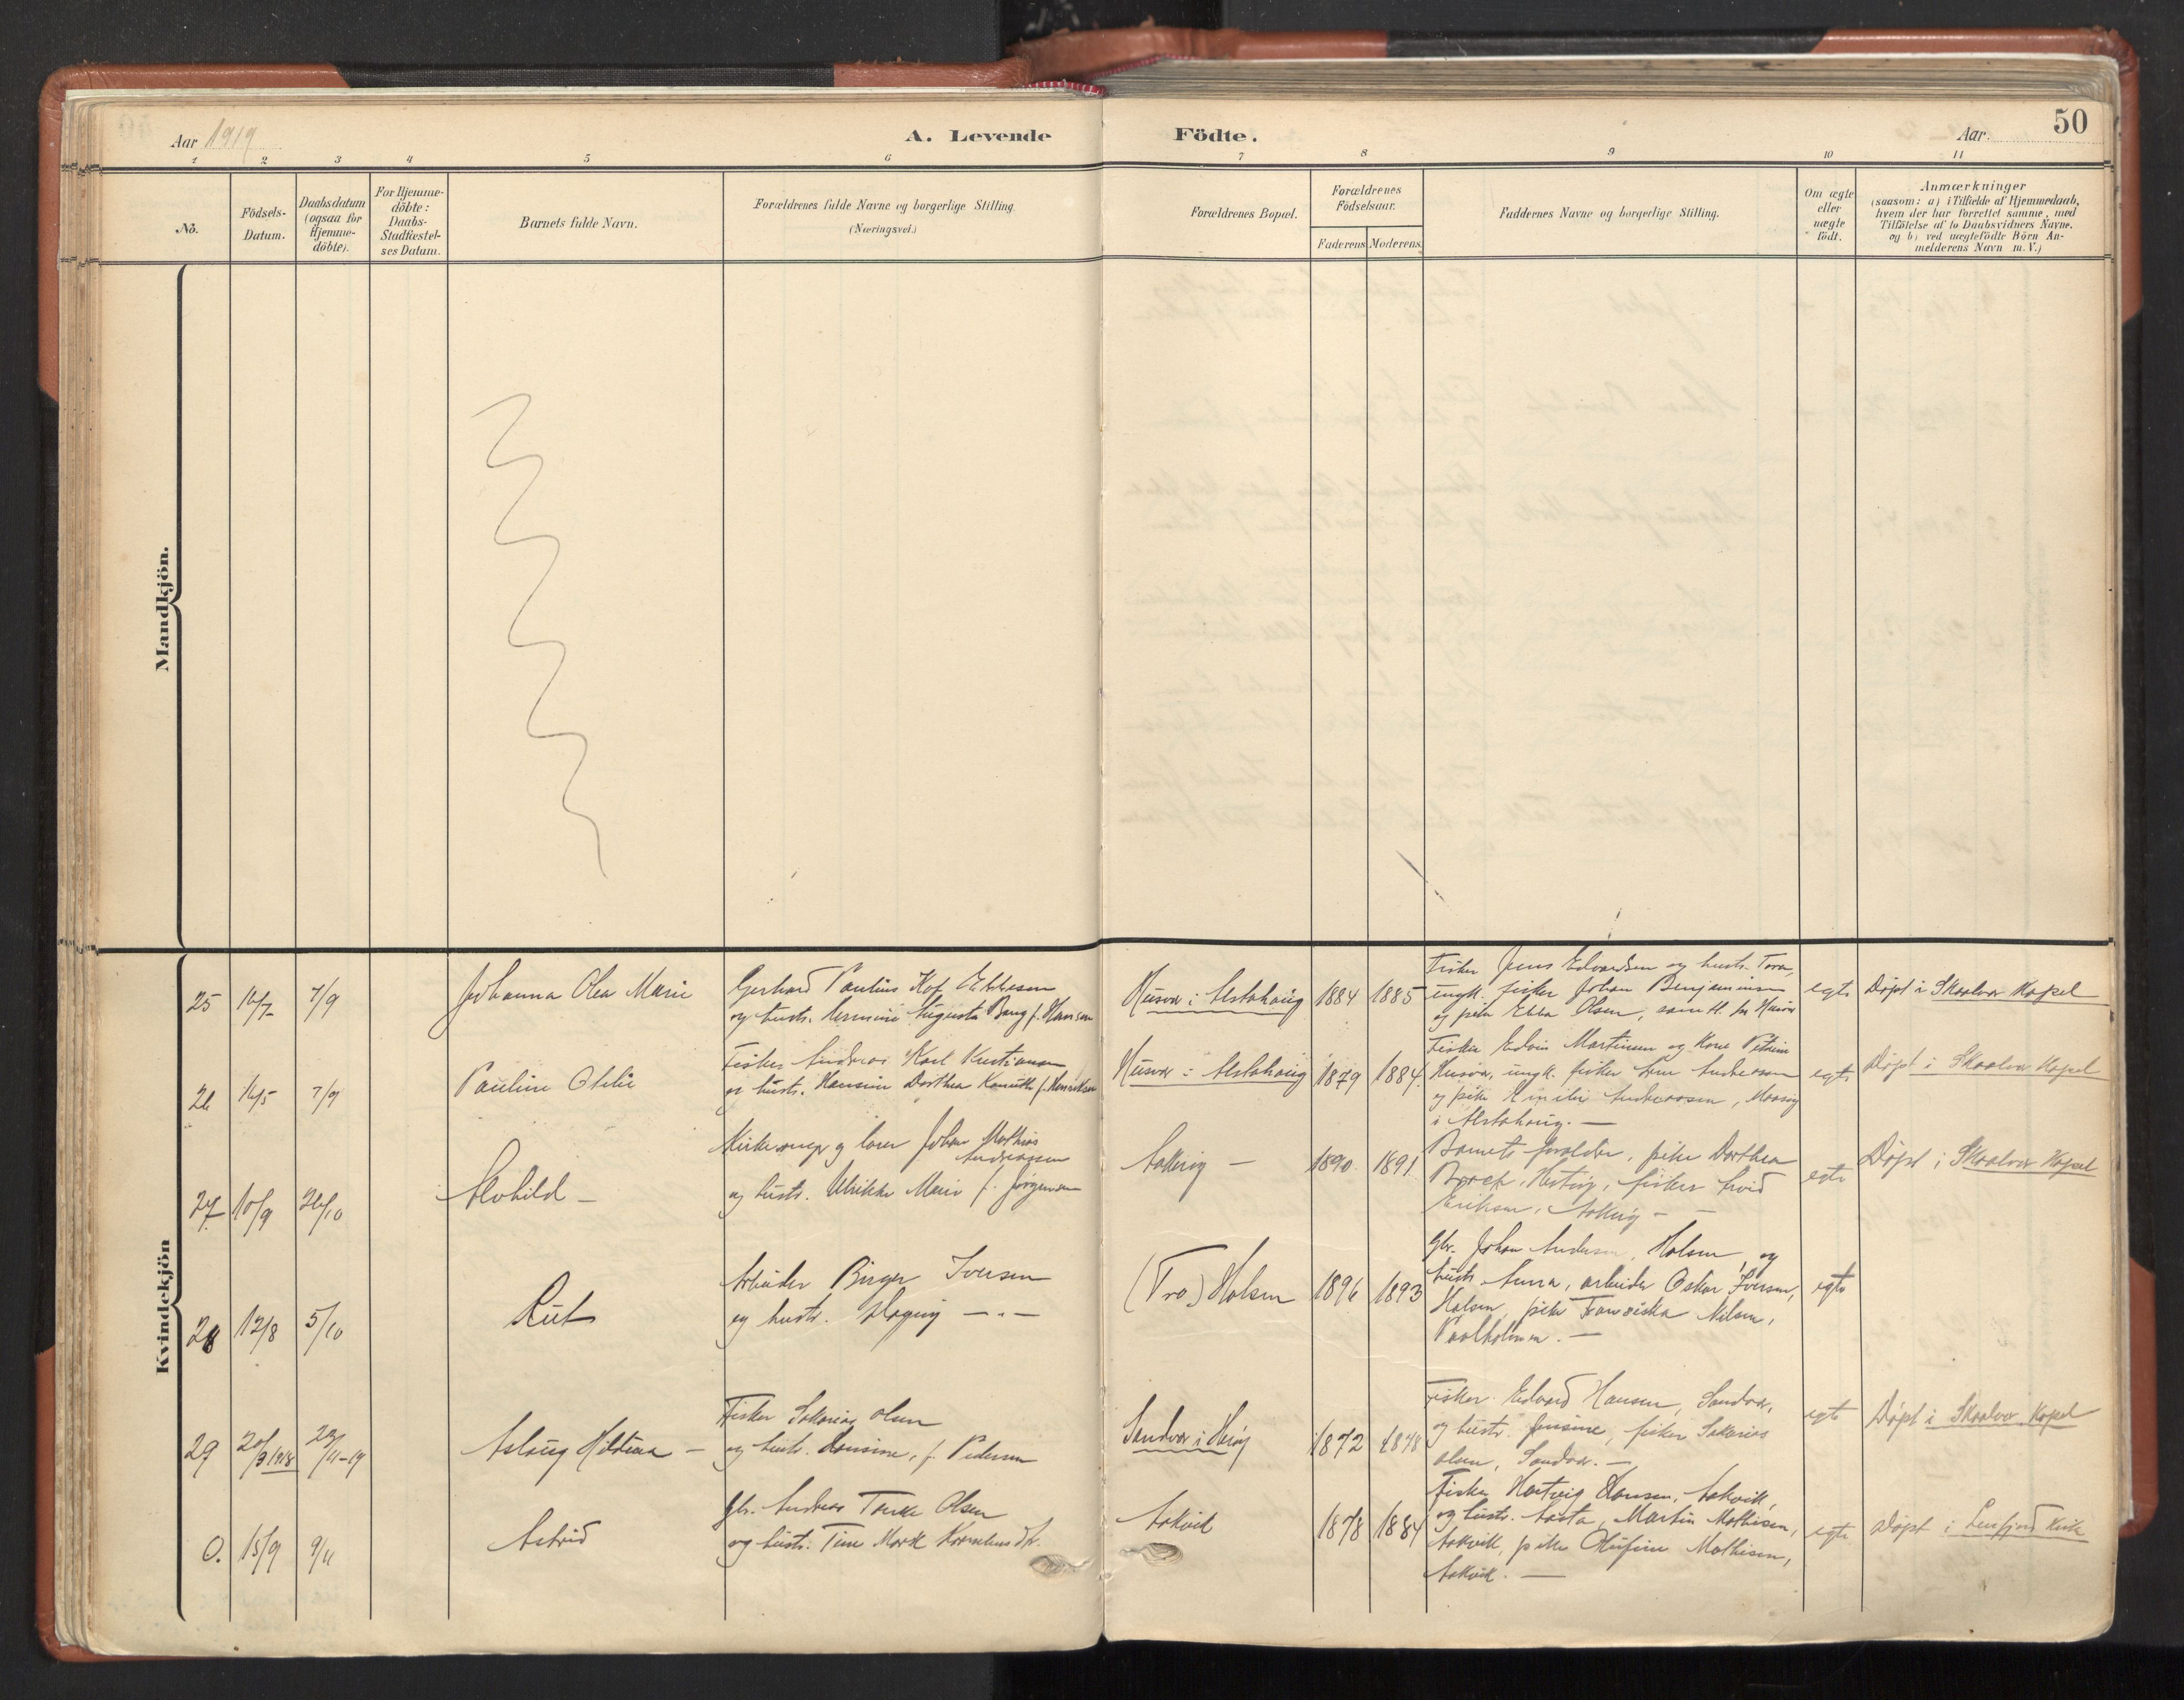 50
Aar 1919
A. Levende Födte.
Aar.
1 2 3 4 5 6 7 8 9 10 11
No.
Födsels-
Datum.
Daabsdatum
(ogsaa for
Hjemme-
döbte).
For Hjemme-
döbte:
Daabs-
Stadfæstel-
ses Datum.
Barnets fulde Navn.
Forældrenes fulde Navne og borgerlige Stilling
(Næringsvei.)
Forældrenes Bopæl.
Forældrenes
Födselsaar.
Faderens Moderens.
Faddernes Navne og borgerlige Stilling.
Om ægte
eller
uægte
födt.
Anmærkninger
(saasom: a) i Tilfælde af Hjemmedaab,
hvem der har forrettet samme, med
Tilföielse af to Daabsvidners Navne.
og b) ved uægtefödte Börn An-
melderens Navn m. V.)
Mandkjön.
Kvindekjön
25 10/7 7/9
Johanna Olea Marie
Gerhard Paulius Hof Ebbesen
og hustr. Augusta Bang f. Hansen
Husvær i Alstahaug
1884 1885
Fisker Jens Edvardsen og hustr. Tora,
ungk. fisker Johan Benjaminsen
og pike Ebba Olsen, samtl. fra Husvær
egte
Døpt i Skaalvær Kapel
26 16/5 7/9
Pauline Otelie
Fisker Andreas Karl Kristiansen
og hustr. Hansine Dorthea f. Henriksen
Husvær i Alstahaug
1879 1884.
Fisker Edvin Martinsen og Kone
Husvær, ungk. fisker Andreassen
og pike Emilie Andreassen,
i Alstahaug. —
egte
Døpt i Skaalvær Kapel
27 10/9 26/10
Alvhild —
Kirkesanger og lærer Johan Mathias
Andreassen
og hustr. Ulrikke Marie f. Jørgensen
—
1890. 1891.
Barnets forældre, pike Dorthea
fisker
Eriksen, — —
egte
Døpt i Skaalvær Kapel
28 12/8 5/10
Rut
Arbeider Birger Iversen
og hustr. —"—
(Tro) Holsen
1896 1893
Gbr. Johan Andersen, Holsen, og
hustr. Anna, arbeider Oskar Iversen,
Holsen, pike Fransiska Nilsen,
Paalholmen. —
egte
29 20/3 1918 23/11-19
Aslaug Hildina —
Fisker Sakarias Olsen
og hustr. Hansine, f. Pedersen
Sandvær i Herøy
1872 1878
Fisker Edvard Hansen, Sandvær,
og hustr. Jensine, fisker Sakarias
Olsen, Sandvær. —
egte
Døpt i Skaalvær Kapel
0. 15/9 9/11
Astrid
Gbr. Andreas Olsen
og hustr. Tine
Aakvik
1878 1884
Fisker Hartvig Hansen, Aakvik,
og hustr. Aasta, Martin Mathisen,
Aakvik, pike Mathisen,
Aakvik. —
egte
Døpt i Leirfjord Kirke